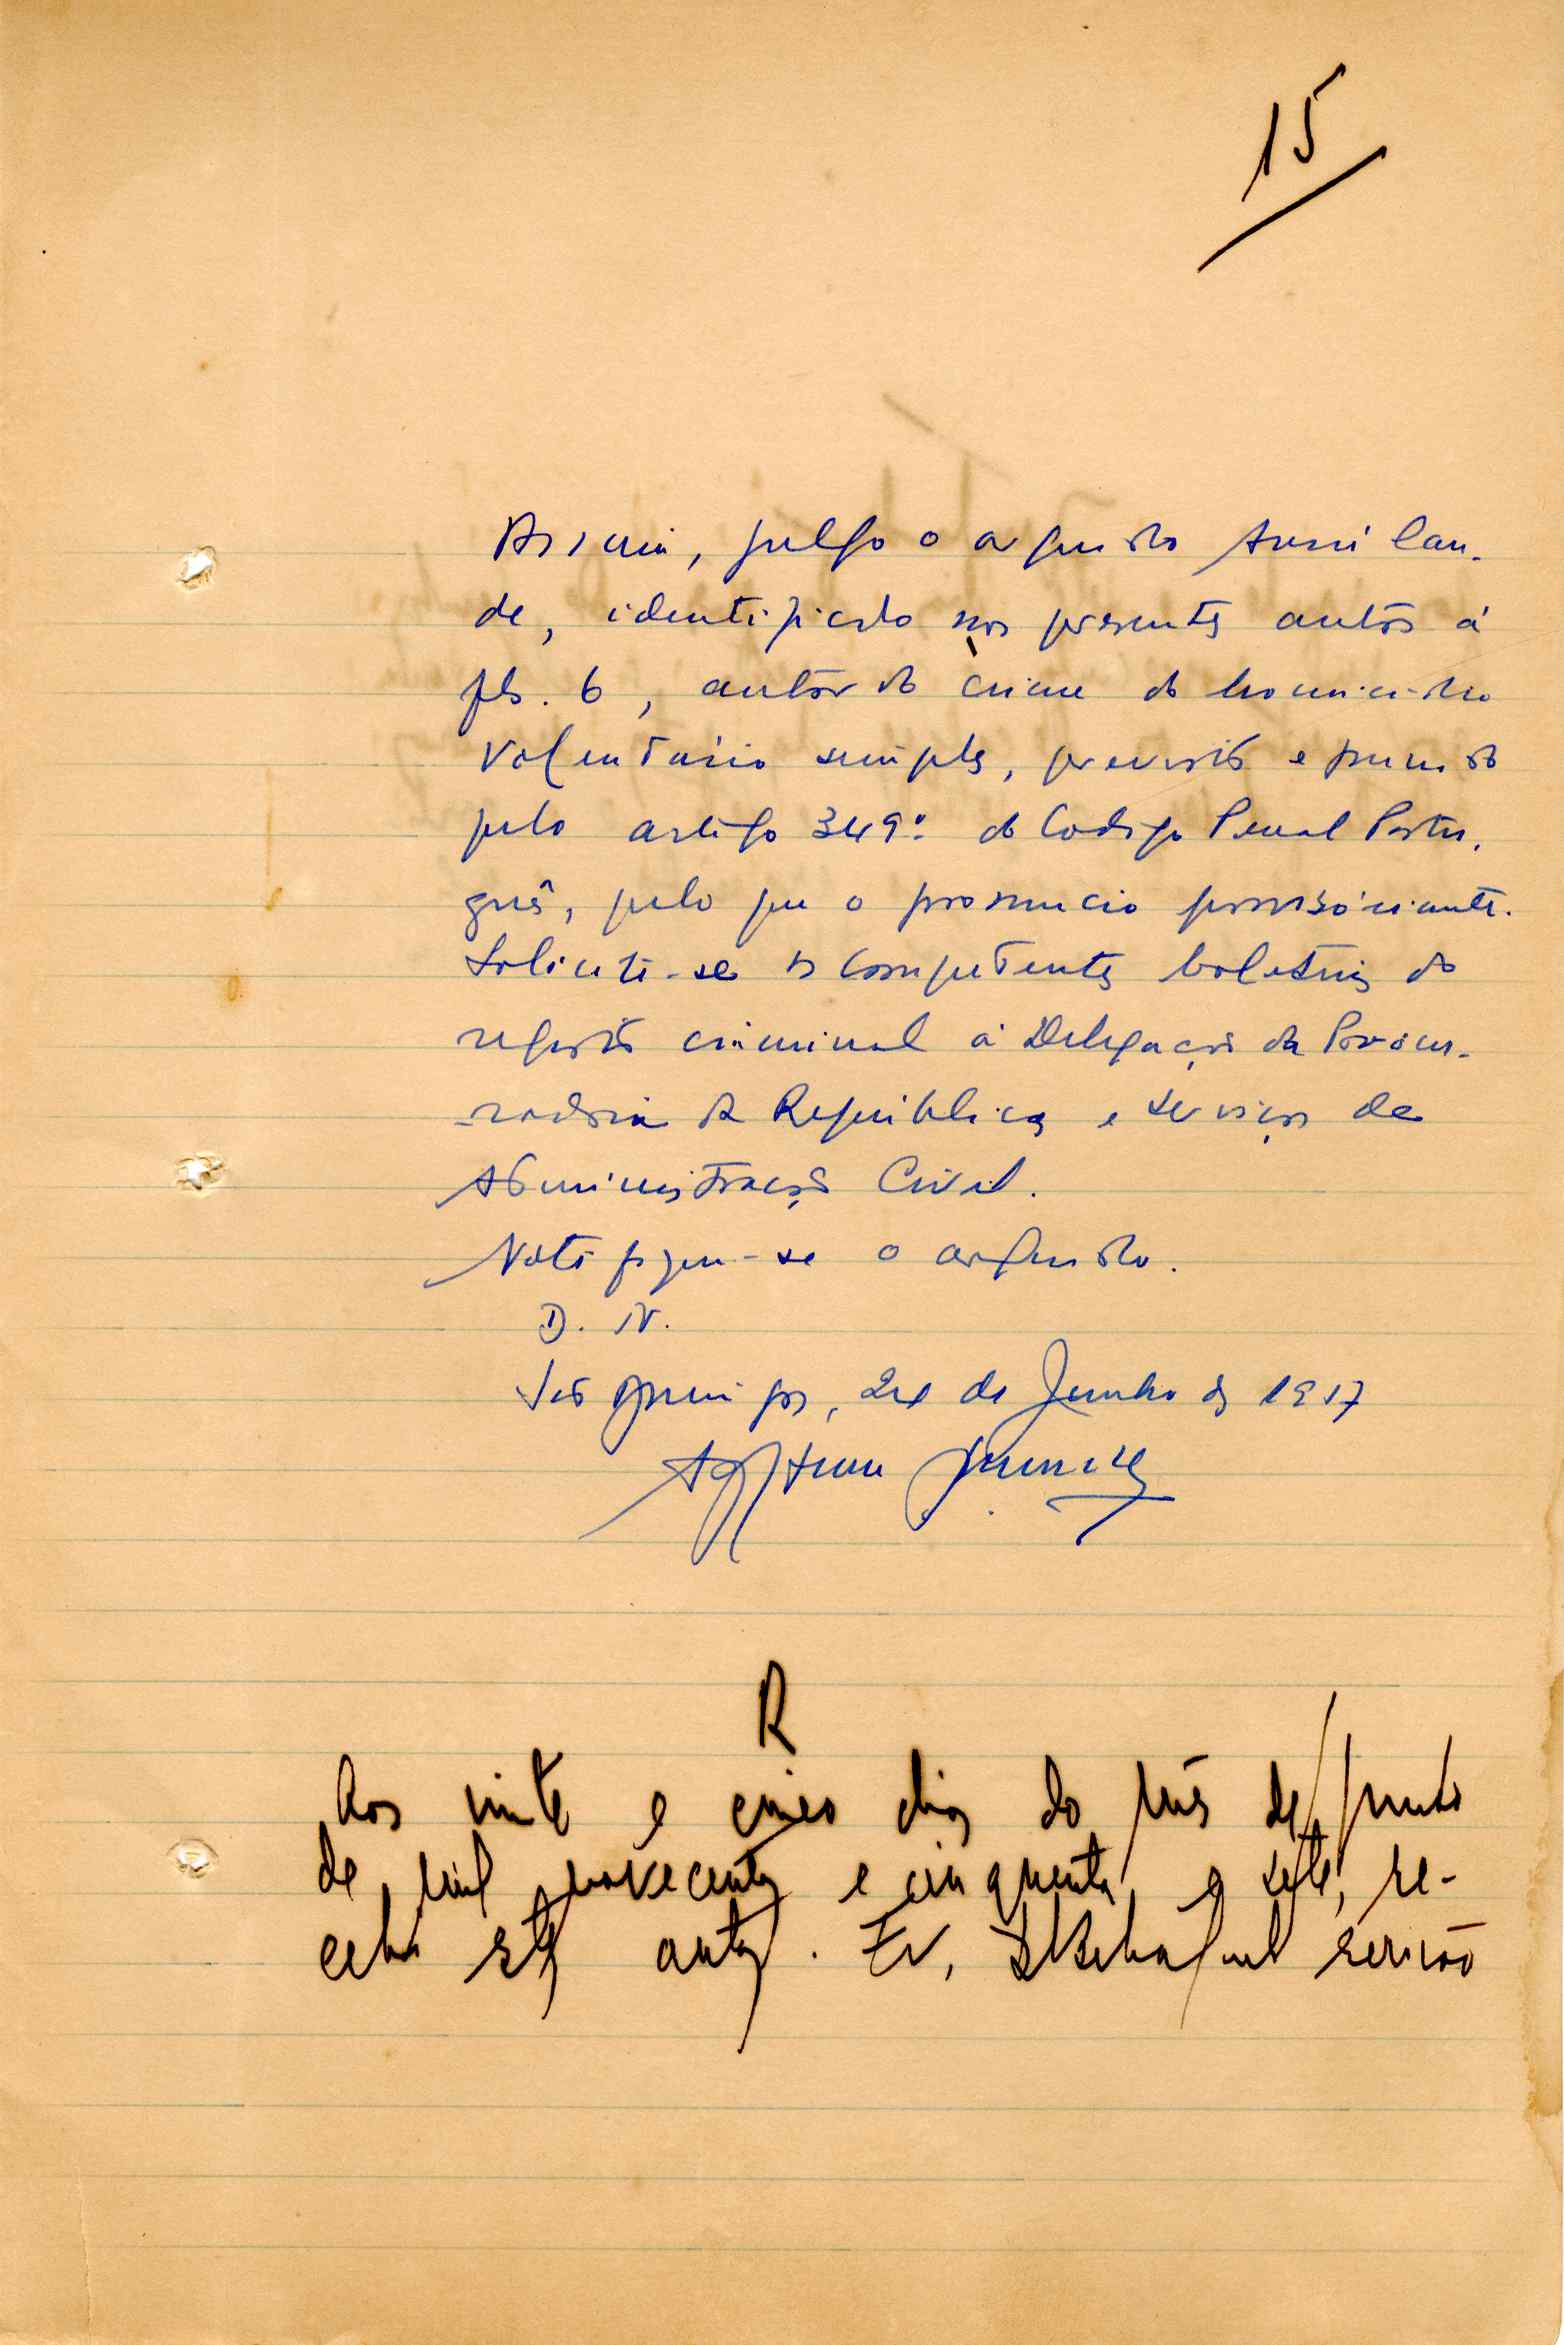 15
Assim, julgo o arguido
de, identificado nos presentes autos à
fls. 6, autor do crime de homicidio
voluntário simples, previsto e punido
pelo artigo 349º do Codigo Penal Portu.
guês, pelo que o pronuncio provisóriamente.
Solicite-se os competentes boletins do
registo criminal à Delegação da Procu-
radoria da República e serviços de
Administração Civil.
Notifique-se o arguido.
D. N.
24 de Junho de 1957
R
Aos vinte e cinco dias do mês de Junho
de mil novecentos e cinquenta e sete, re-
cebi estes autos. Eu, escrivão